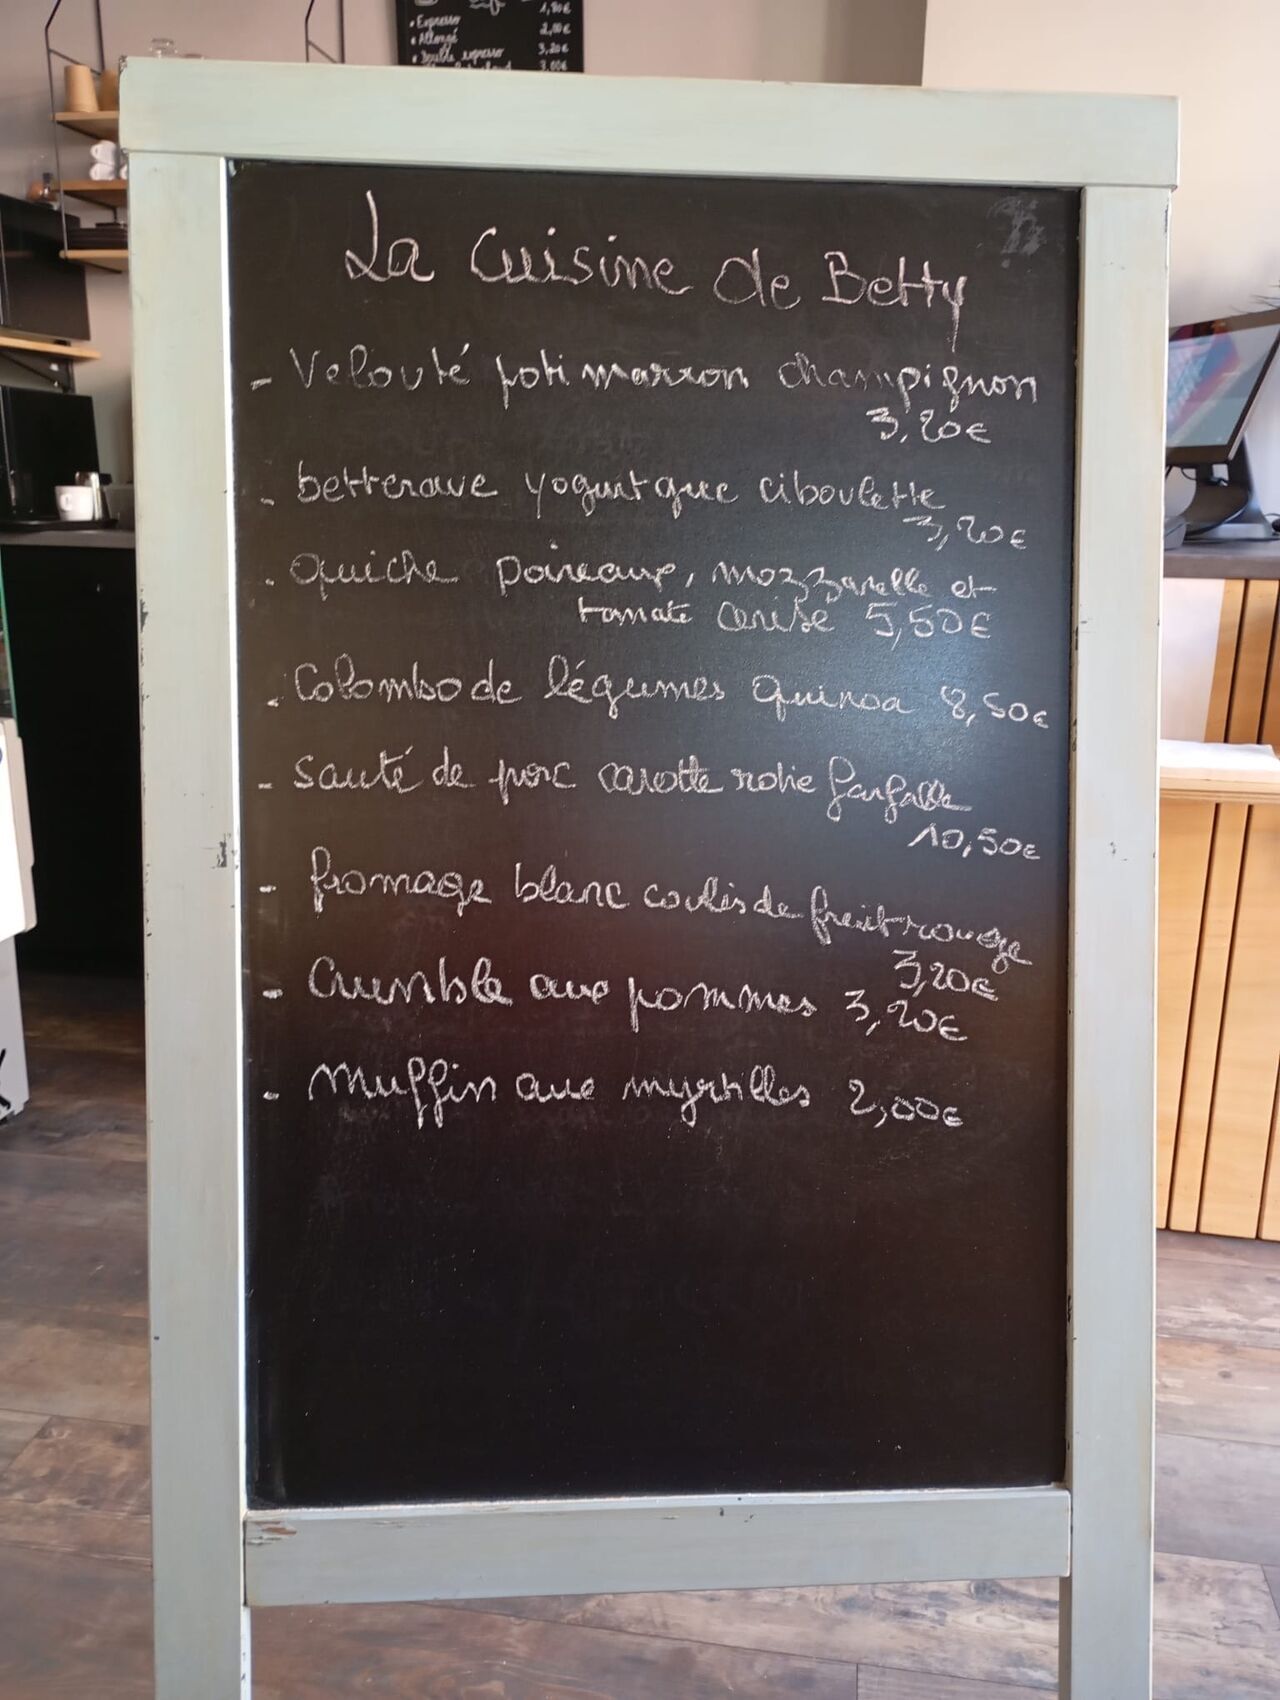 1,80€
• Expresso 2,00€
• Allongé 3,20€
• Double expresso 3,00€
La Cuisine de Betty
- Velouté potimarron champignon
3,20€
- betterave yogurt grec ciboulette
3,20€
- quiche poireaux, mozzarelle et
tomate cerise 5,50€
- Colombo de légumes quinoa 8,50€
- Sauté de porc carotte rotie farfalle
10,50€
- fromage blanc coulis de fruit rouge
3,20€
- Crumble aux pommes 3,20€
- Muffin aux myrtilles 2,00€